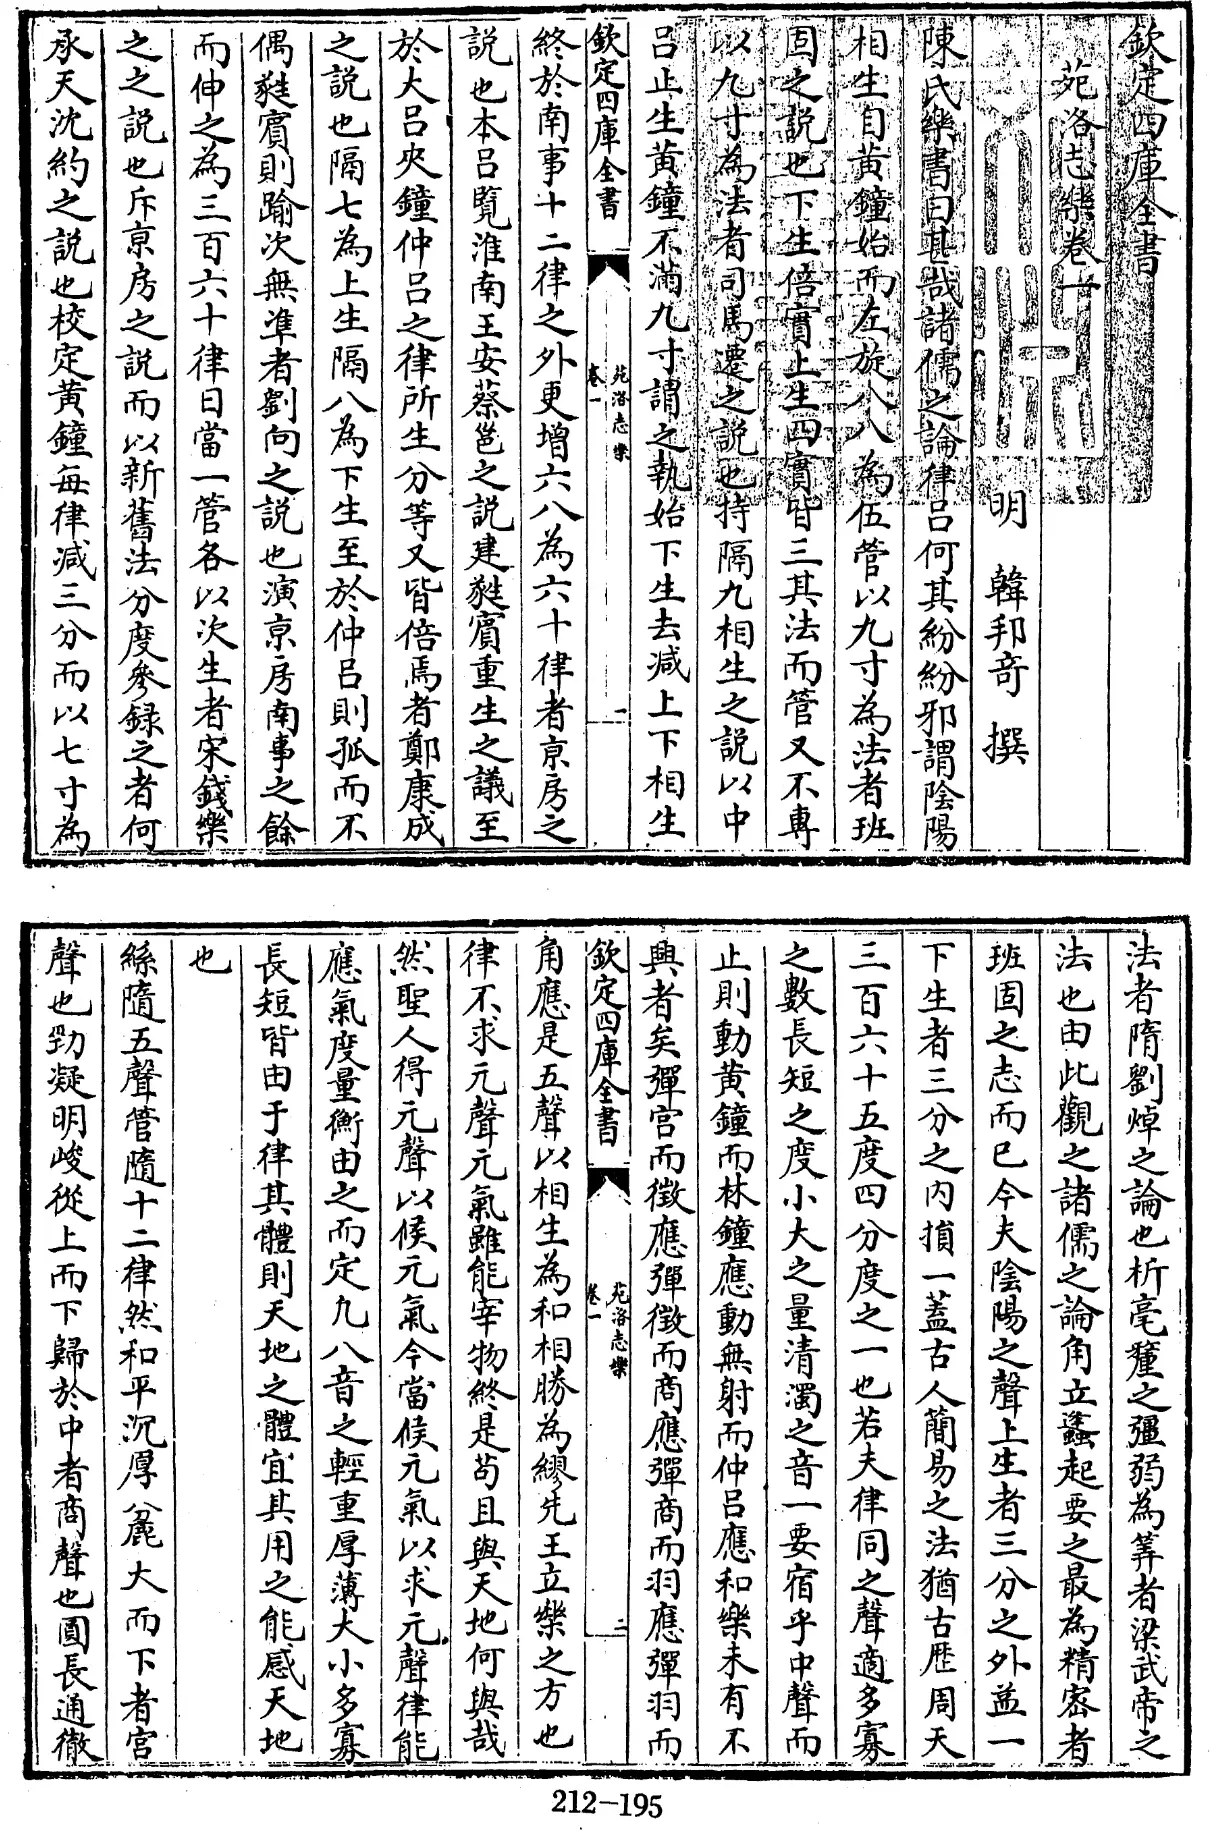 欽定四庫全書
苑洛志樂卷一
明 韓邦奇 撰
陳氏樂書曰甚哉諸儒之論律吕何其紛紛邪謂陰陽
相生自黄鐘始而左旋八八為伍管以九寸為法者班
固之説也下生倍實上生四實皆三其法而管又不專
以九寸為法者司馬遷之説也持隔九相生之説以中
吕止生黄鐘不滿九寸謂之執始下生去減上下相生
欽定四庫全書
苑洛志樂
卷一
一
終於南事十二律之外更增六八為六十律者京房之
説也本吕覽淮南王安蔡邕之説建蕤賓重生之議至
於大吕夾鐘仲吕之律所生分等又皆倍焉者鄭康成
之説也隔七為上生隔八為下生至於仲吕則孤而不
偶蕤賓則踰次無準者劉向之説也演京房南事之餘
而伸之為三百六十律日當一管各以次生者宋錢樂
之之説也斥京房之説而以新舊法分度參録之者何
承天沈約之説也校定黄鐘每律減三分而以七寸為
法者隋劉焯之論也析毫釐之彊弱為筭者梁武帝之
法也由此觀之諸儒之論角立蠭起要之最為精密者
班固之志而已今夫陰陽之聲上生者三分之外益一
下生者三分之内損一蓋古人簡易之法猶古歴周天
三百六十五度四分度之一也若夫律同之聲適多寡
之數長短之度小大之量清濁之音一要宿乎中聲而
止則動黄鐘而林鐘應動無射而仲吕應和樂未有不
興者矣彈宫而徴應彈徴而商應彈商而羽應彈羽而
欽定四庫全書
苑洛志樂
卷一
二
角應是五聲以相生為和相勝為繆先王立樂之方也
律不求元聲元氣雖能宰物終是苟且與天地何與哉
然聖人得元聲以候元氣今當候元氣以求元聲律能
應氣度量衡由之而定九八音之輕重厚薄大小多寡
長短皆由于律其體則天地之體宜其用之能感天地
也
絲隨五聲管隨十二律然和平沉厚麄大而下者宫
聲也勁凝明峻從上而下歸於中者商聲也圓長通徹
212-195